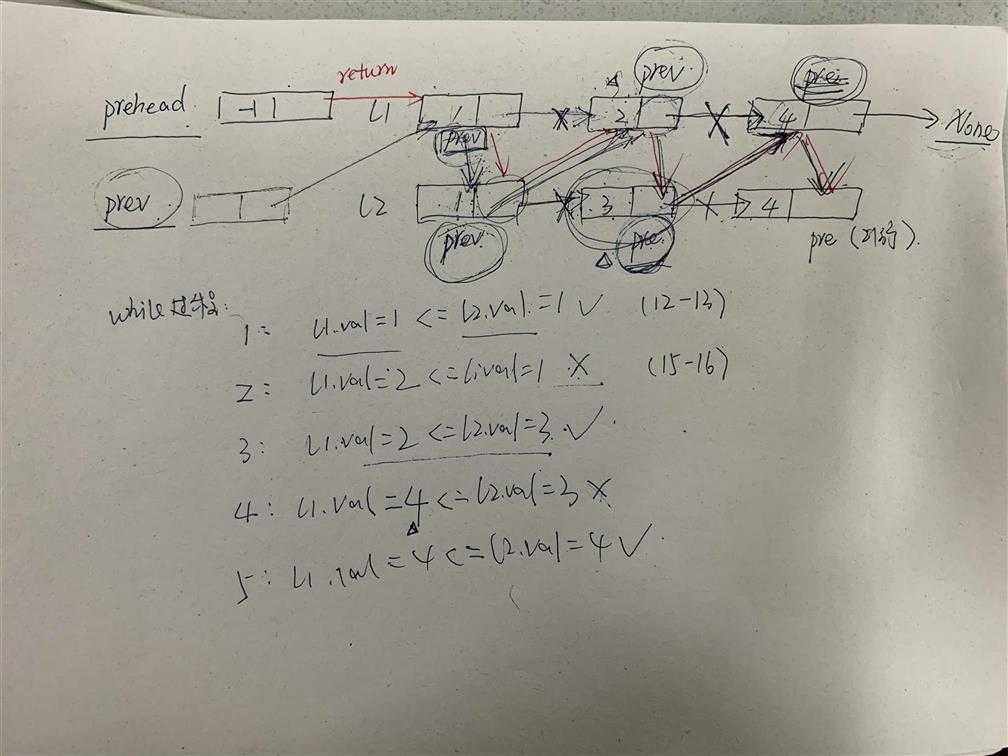 return
prev
pre
prehead
-1
L1
1
2
4
None
prev
prev
L2
1
3
4
prev
pre
pre
while过程:
1: L1.val=1 <= L2.val=1 ✓ (12-13)
2: L1.val=2 <= L1.val=1 × (15-16)
3: L1.val=2 <= L2.val=3 ✓
4: L1.val=4 <= L2.val=3 ×
5: L1.val=4 <= L2.val=4 ✓